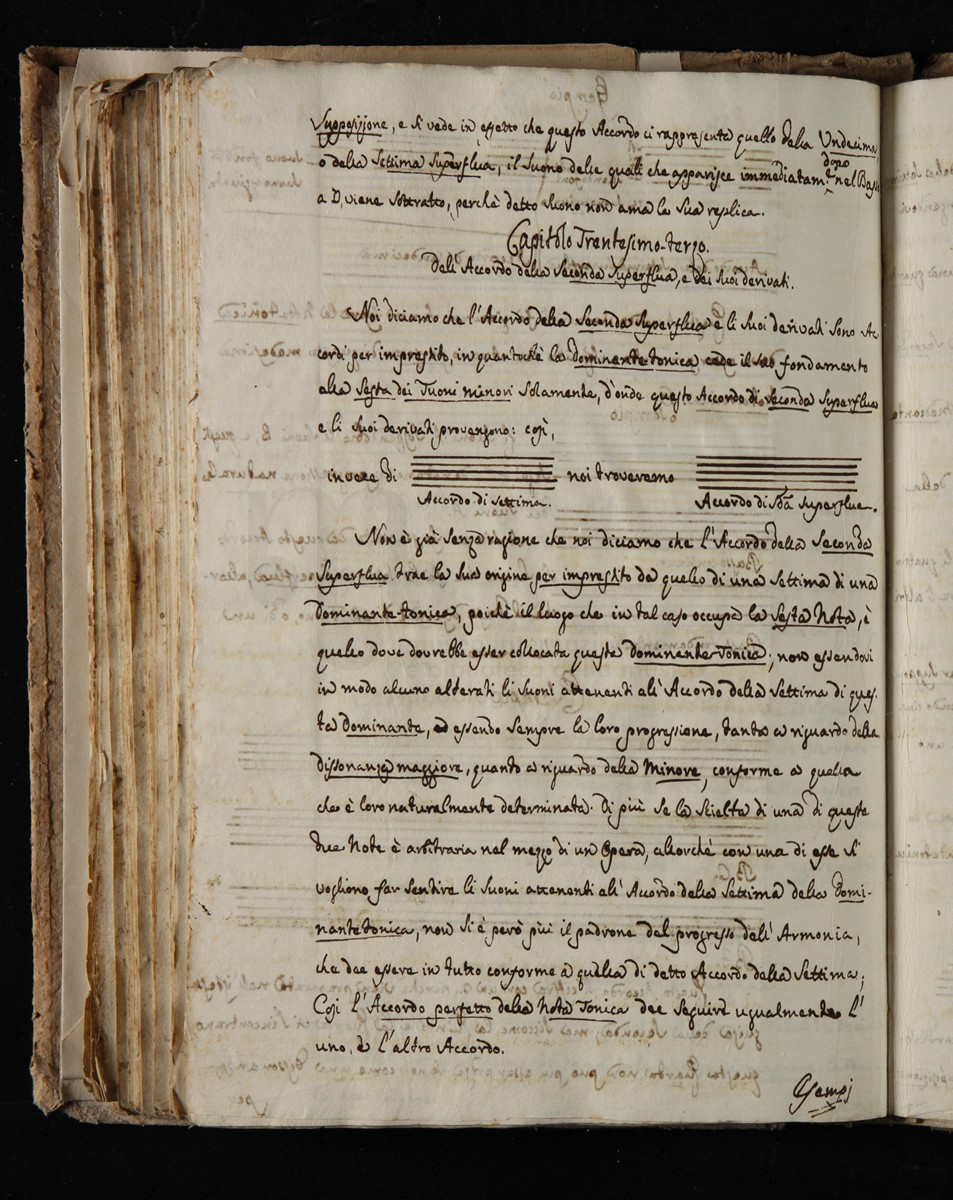 Supposizione, e si vede in effetto che questo Accordo ci rappresenta quello della Undecima
o della Settima Superflua, il suono delle quali che apparisce immediatam.te dopo nel Basso
a D, viene sottratto, perchè detto suono non ama la sua replica.
Capitolo Trentesimo-terzo.
Dell'Accordo della Seconda Superflua, e dei suoi derivati.
Noi diciamo che l'Accordo della Seconda Superflua e li suoi derivati sono Ac-
cordi per imprestito, in quantochè la Dominante-tonica cede il suo fondamento
alla Sesta dei Tuoni minori solamente, d'onde questo Accordo di Seconda Superflua
e li suoi derivati provengono: così,
invece di noi troveremo
Accordo di Settima. Accordo di 2da Superflua.
Non è già senza ragione che noi diciamo che l'Accordo della Seconda
Superflua trae la sua origine per imprestito da quello di una Settima di una
Dominante-tonica, poichè il luogo che in tal caso occupa la Sesta Nota, è
quello dove dovrebbe esser collocata questa Dominante-Tonica; non essendovi
in modo alcuno alterati li suoni attenenti all'Accordo della Settima di ques-
ta Dominante, ed essendo sempre la loro progressione, tanto a riguardo della
Dissonanza maggiore, quanto a riguardo della Minore, conforme a quella
che è loro naturalmente determinata. Di più se la scielta di una di queste
due Note è arbitraria nel mezzo di un Opera, allorchè con una di esse si
vogliono far sentire li suoni attenenti all'Accordo della Settima della Domi-
nante tonica, non si è però più il padrone del progresso dell'Armonia,
che dee essere in tutto conforme a quella di detto Accordo della Settima;
Così l'Accordo perfetto della Nota Tonica dee seguire ugualmente l'
uno, e l'altro Accordo.